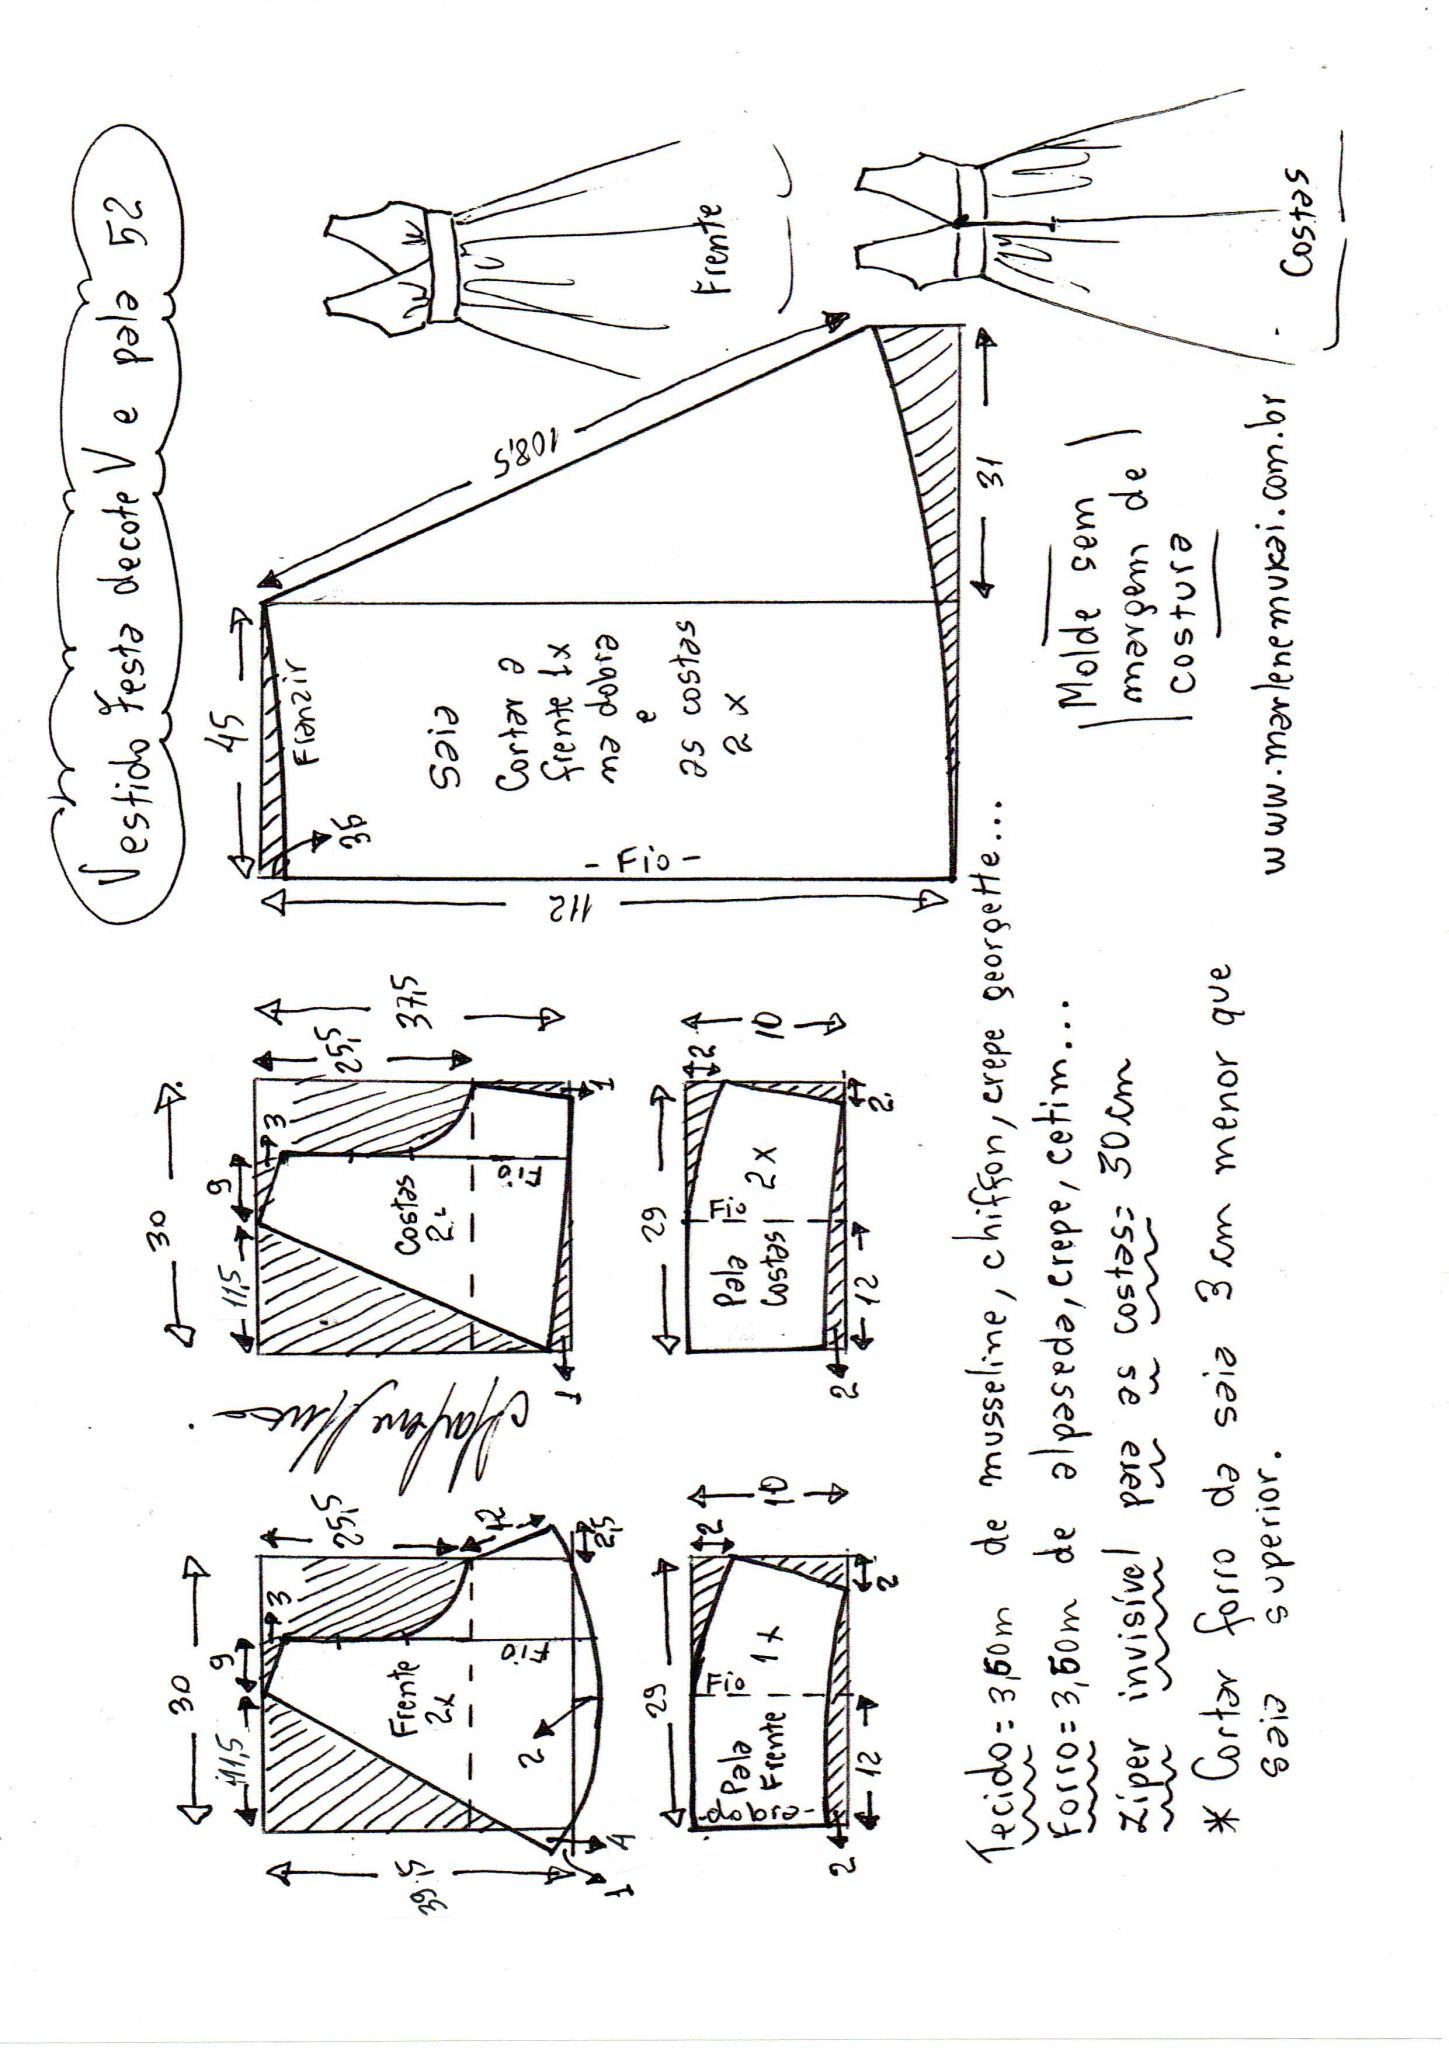 Vestido festa decote V e pala 52
30
11,5
9
3
25,5
12
39,5
Frente
2x
Fio
2
2,5
1
4
29
2
10
Pala
Frente
dobra
Fio
1x
12
2
2
30
11,5
9
3
25,5
37,5
Costas
Fio
1
1
29
2
10
Pala
Costas
Fio
2x
12
2
2
45
Franzir
35
112
108,5
31
Saia
Cortar a
frente 1x
na dobra
e
as costas
2x
- Fio -
Frente
Costas
Molde sem
margem de
costura
Tecido = 3,50m de musseline, chiffon, crepe georgette...
Forro = 3,50m de alpaseda, crepe, cetim...
Ziper invisível para as costas = 30cm
* Cortar forro da saia 3 cm menor que
saia superior.
www.marlenemukai.com.br